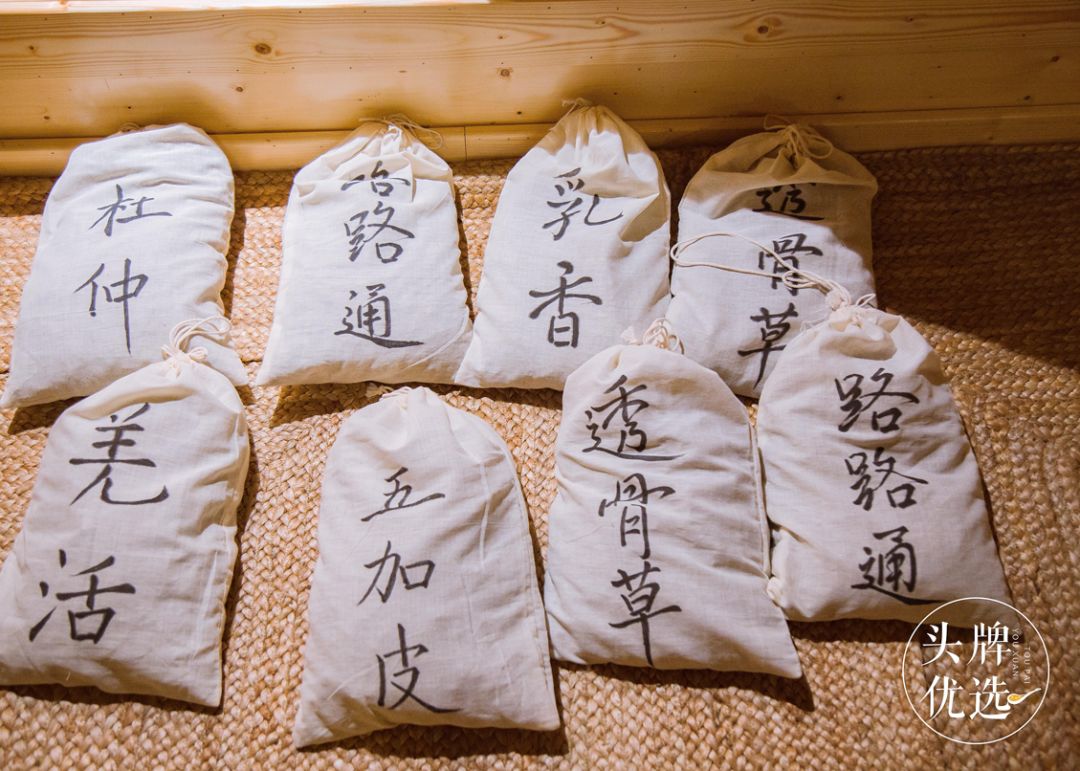 杜仲
路路通
乳香
透骨草
羌活
五加皮
透骨草
路路通
头牌
优选
TOU PAI
YOU XUAN